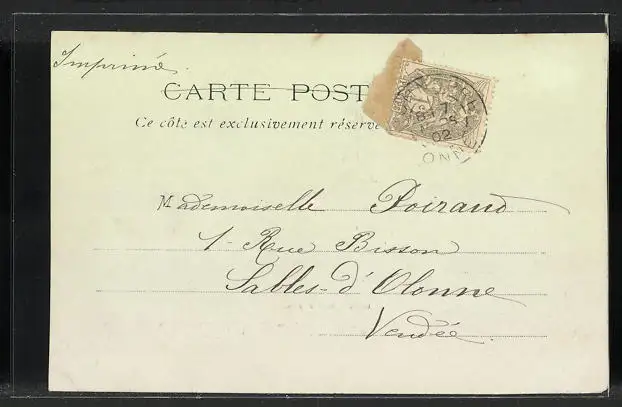 Imprimé.
CARTE POST
Ce côté est exclusivement réservé
02
Mademoiselle Poiraud
1 - Rue Bisson
Sables-d'Olonne
Vendée.